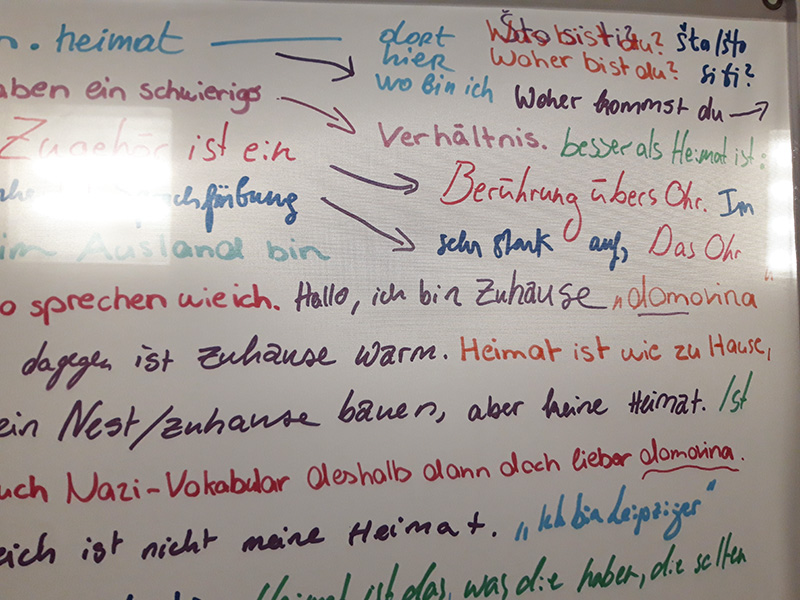 n. heimat dort Što bist du? što/sto
hier Woher bist du? si ti?
wo bin ich Woher kommst du →
aben ein schwierigs Verhältnis. besser als Heimat ist:
Zugehör ist ein Berührung übers Ohr. Im
färbung sehr stark auf, Das Ohr
im Ausland bin
o sprechen wie ich. Hallo, ich bin Zuhause „domovina"
dagegen ist zuhause warm. Heimat ist wie zu Hause,
ein Nest/zuhause bauen, aber keine Heimat. Ist
uch Nazi-Vokabular deshalb dann doch lieber domovina.
eich ist nicht meine Heimat. „Ich bin Leipziger"
Heimat ist das, was die haben, die selten